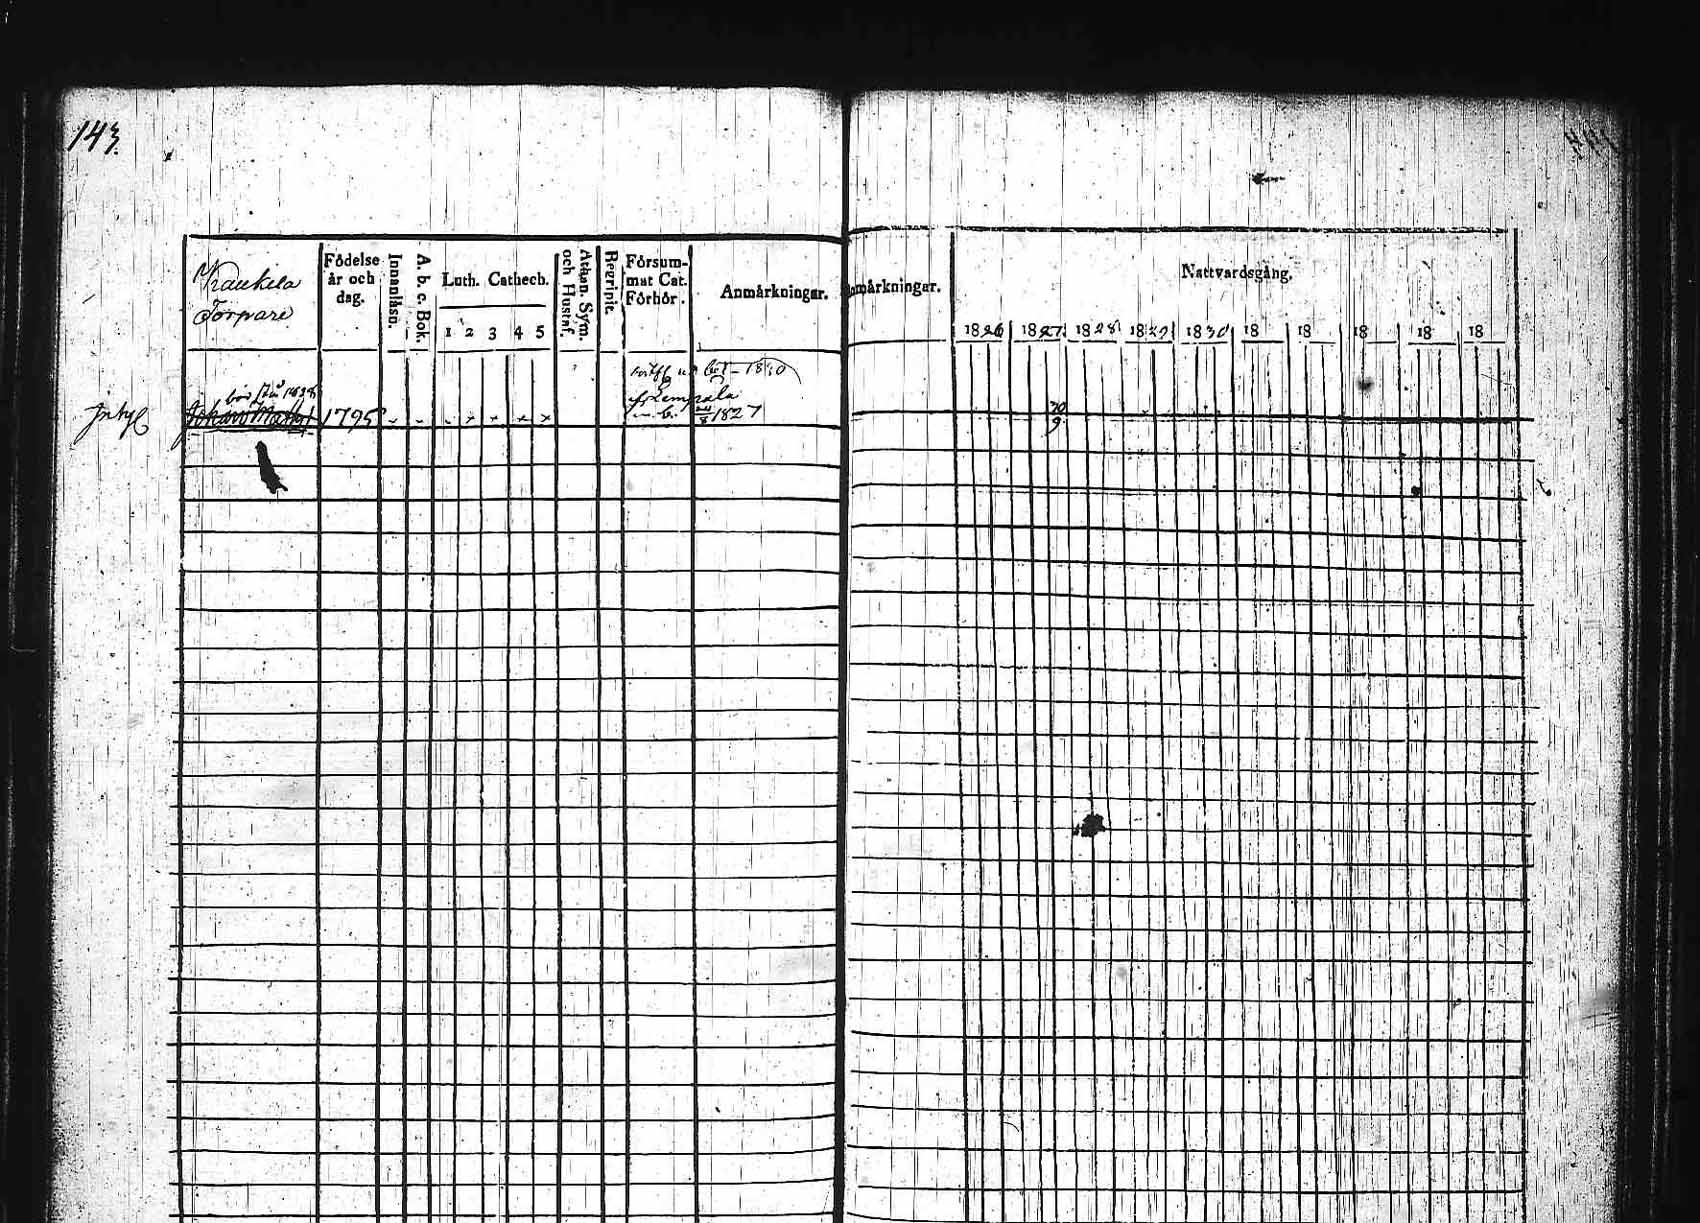 143.
Krankila
Torpare
Födelse
år och
dag.
Innanläsn.
A. b. c. Bok.
Luth. Cathech.
1 2 3 4 5
Athan. Sym.
och Hustaf.
Begripit.
Försum-
mat Cat.
Förhör.
Anmärkningar.
1830
1828
Johan Matts 1795 x x x x
fr Lempäla
1827
Anmärkningar.
Nattvardsgång.
1826 1827 1828 1829 1830 18 18 18 18 18
30
9